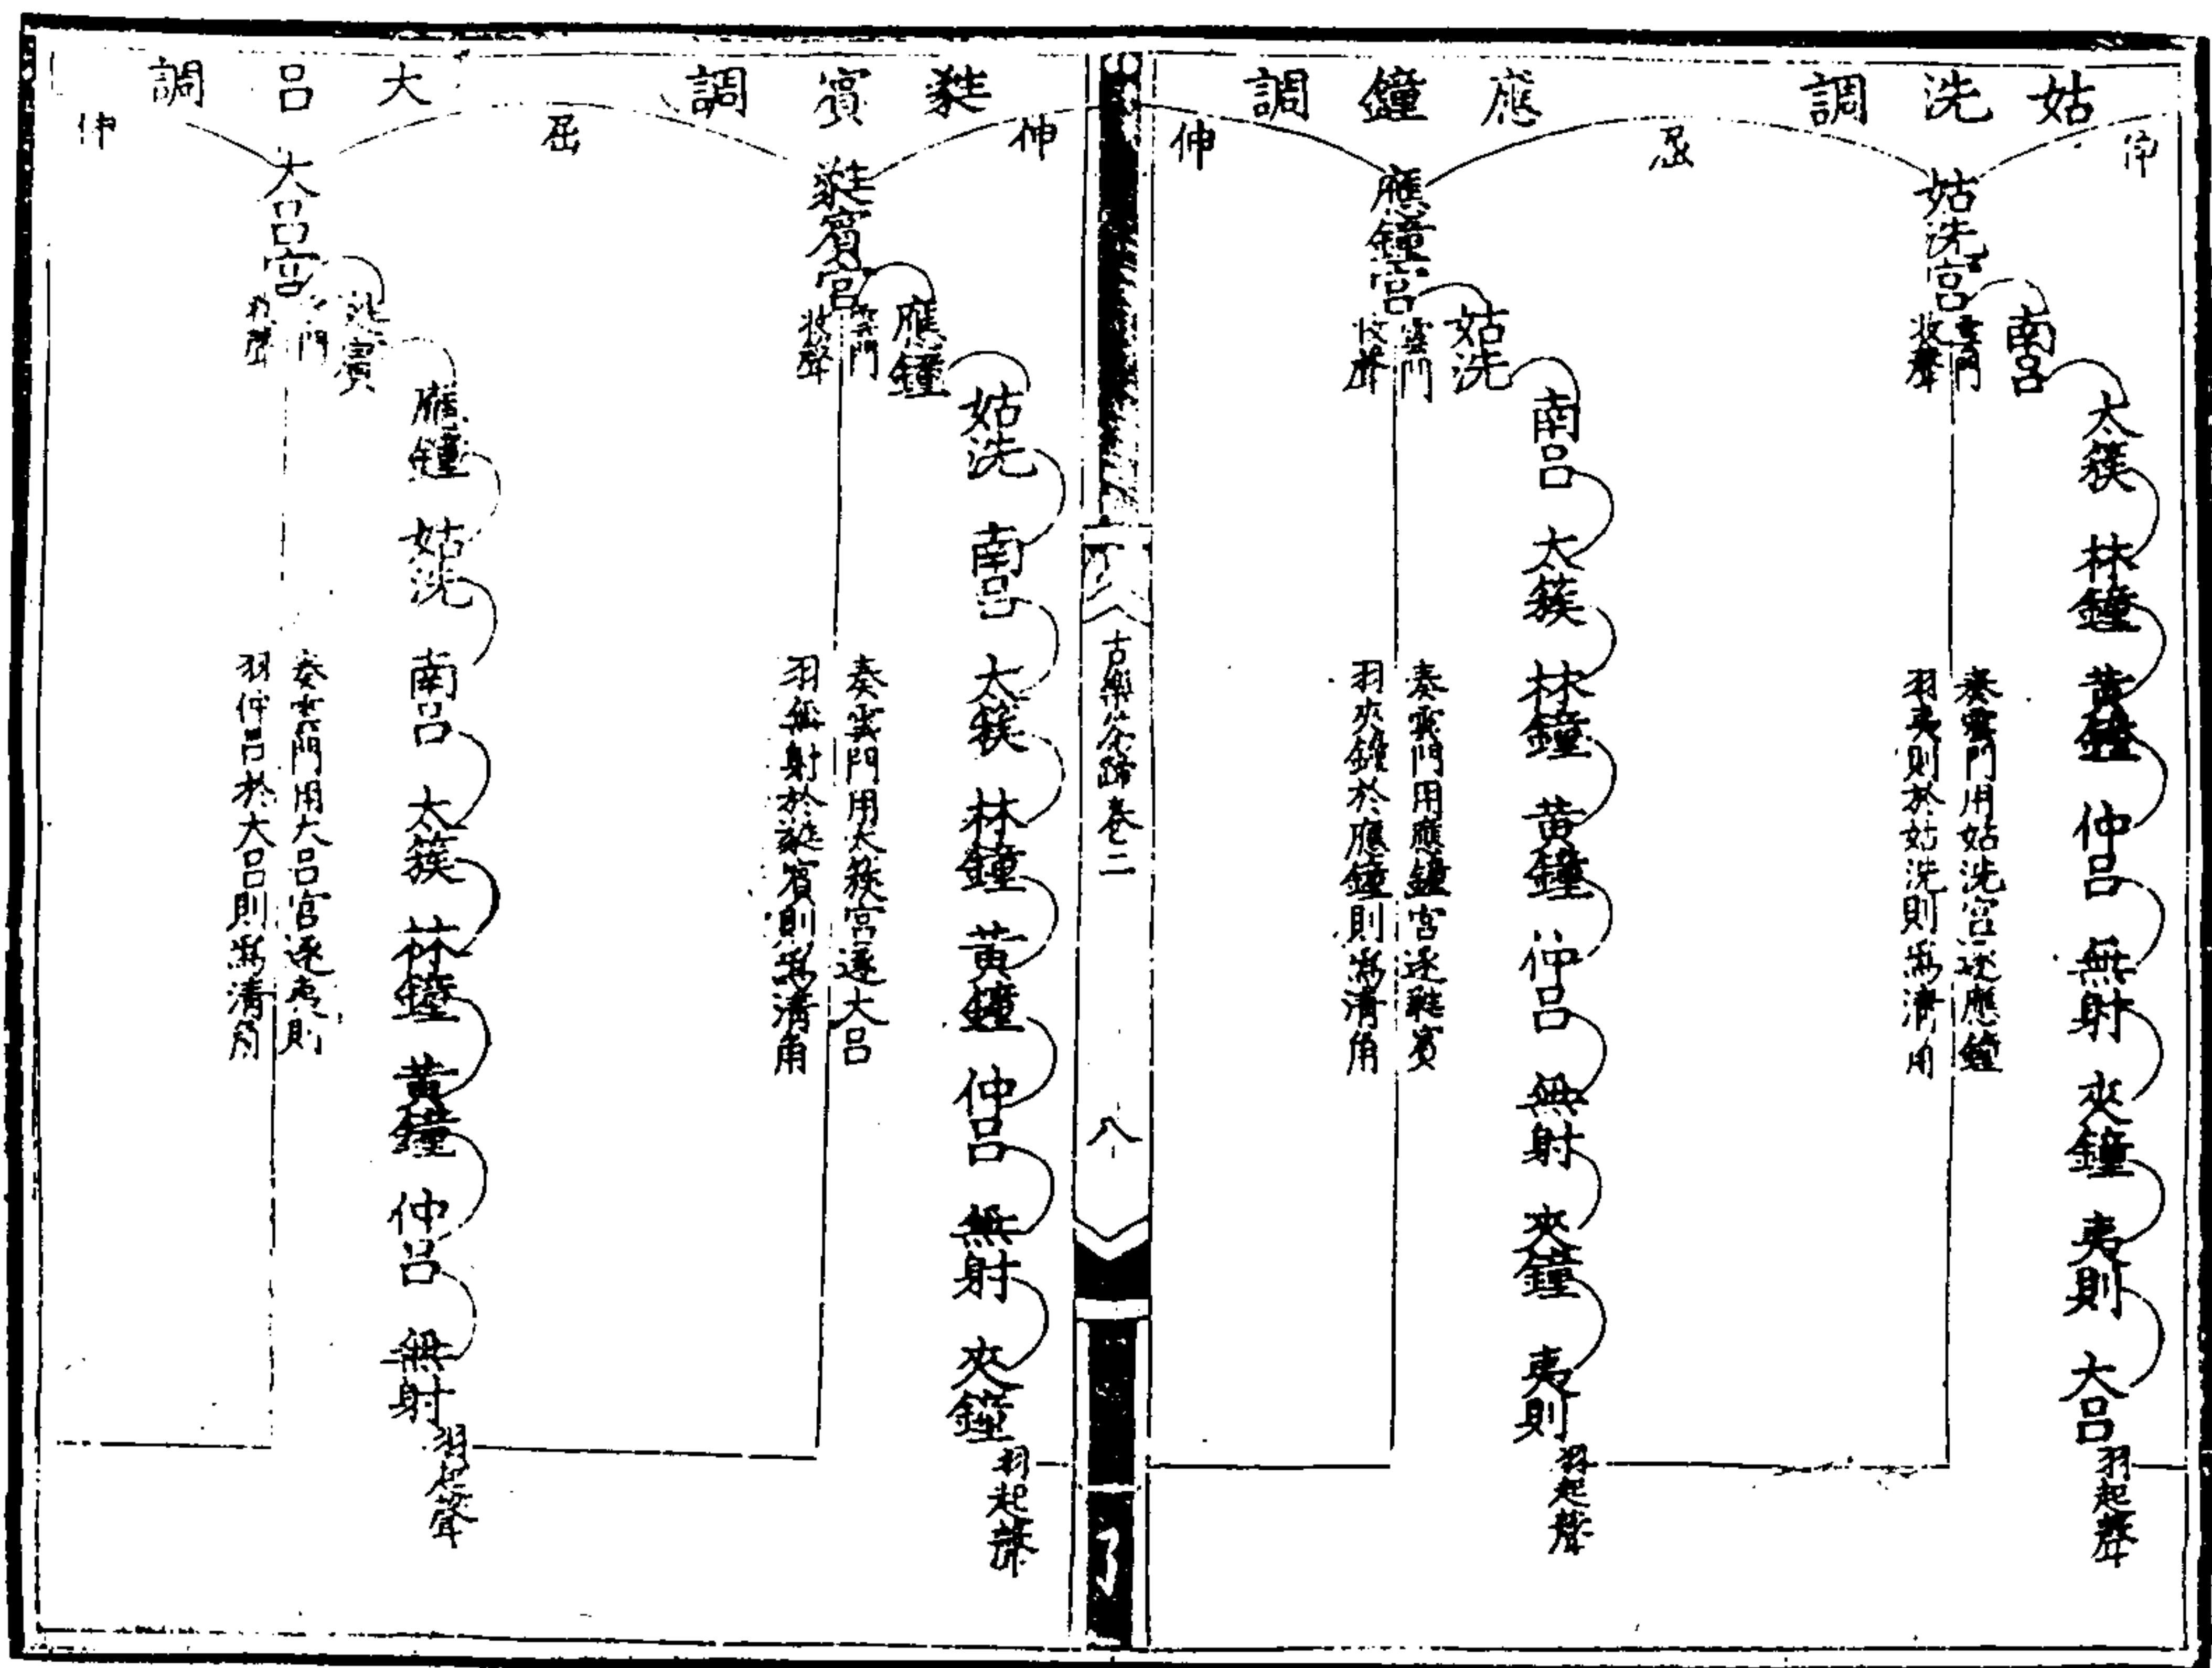 姑洗調
伸
姑洗宮
雲門
收聲
南呂
太簇 林鐘 黃鐘 仲呂 無射 夾鐘 夷則 大呂
羽起聲
奏雲門用姑洗宮逐應鐘
羽夷則於姑洗則為清角
屈
應鐘調
應鐘宮
雲門
收聲
姑洗
南呂 太簇 林鐘 黃鐘 仲呂 無射 夾鐘 夷則
羽起聲
奏雲門用應鐘宮逐蕤賓
羽夾鐘於應鐘則為清角
伸
古樂筌蹄卷二
八
伸
蕤賓調
蕤賓宮
雲門
收聲
應鐘
姑洗 南呂 太簇 林鐘 黃鐘 仲呂 無射 夾鐘
羽起聲
奏雲門用太簇宮逐大呂
羽無射於蕤賓則為清角
屈
大呂調
大呂宮
門
收聲
蕤賓
應鐘 姑洗 南呂 太簇 林鐘 黃鐘 仲呂 無射
羽起聲
奏雲門用大呂宮逐夷則
羽仲呂於大呂則為清角
伸